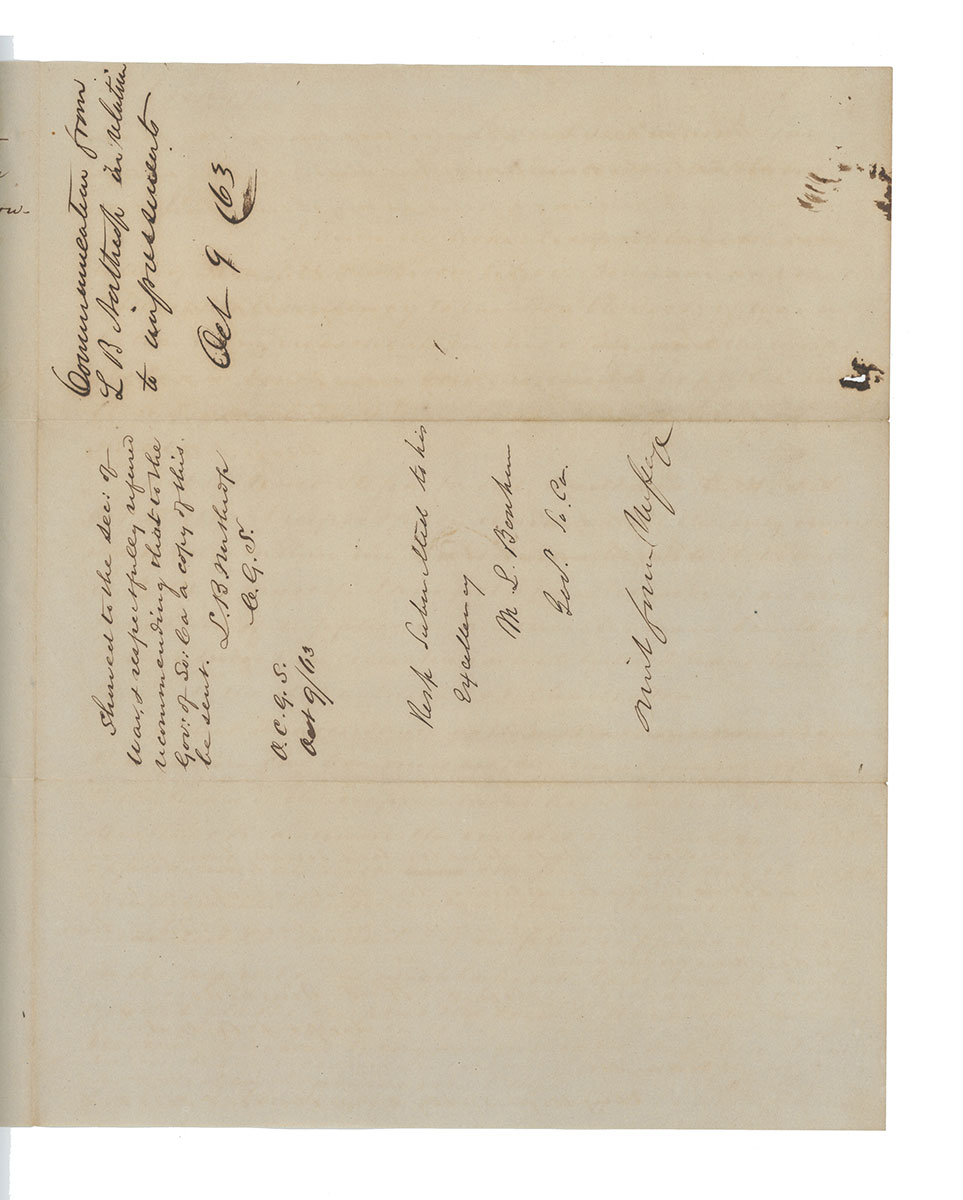 Communication from
L B Northrop in relation
to impressments
Oct 9 /63
Shewed to the Sec: of
War, & respectfully refered
recommending that to the
Gov: of So: Ca a copy of this
be sent.
L. B Northrop
C. G. S.
O. C. G. S.
Oct 9/63
Resp Submitted to his
Excellency
M. L. Bonham
Gov. So. Ca.